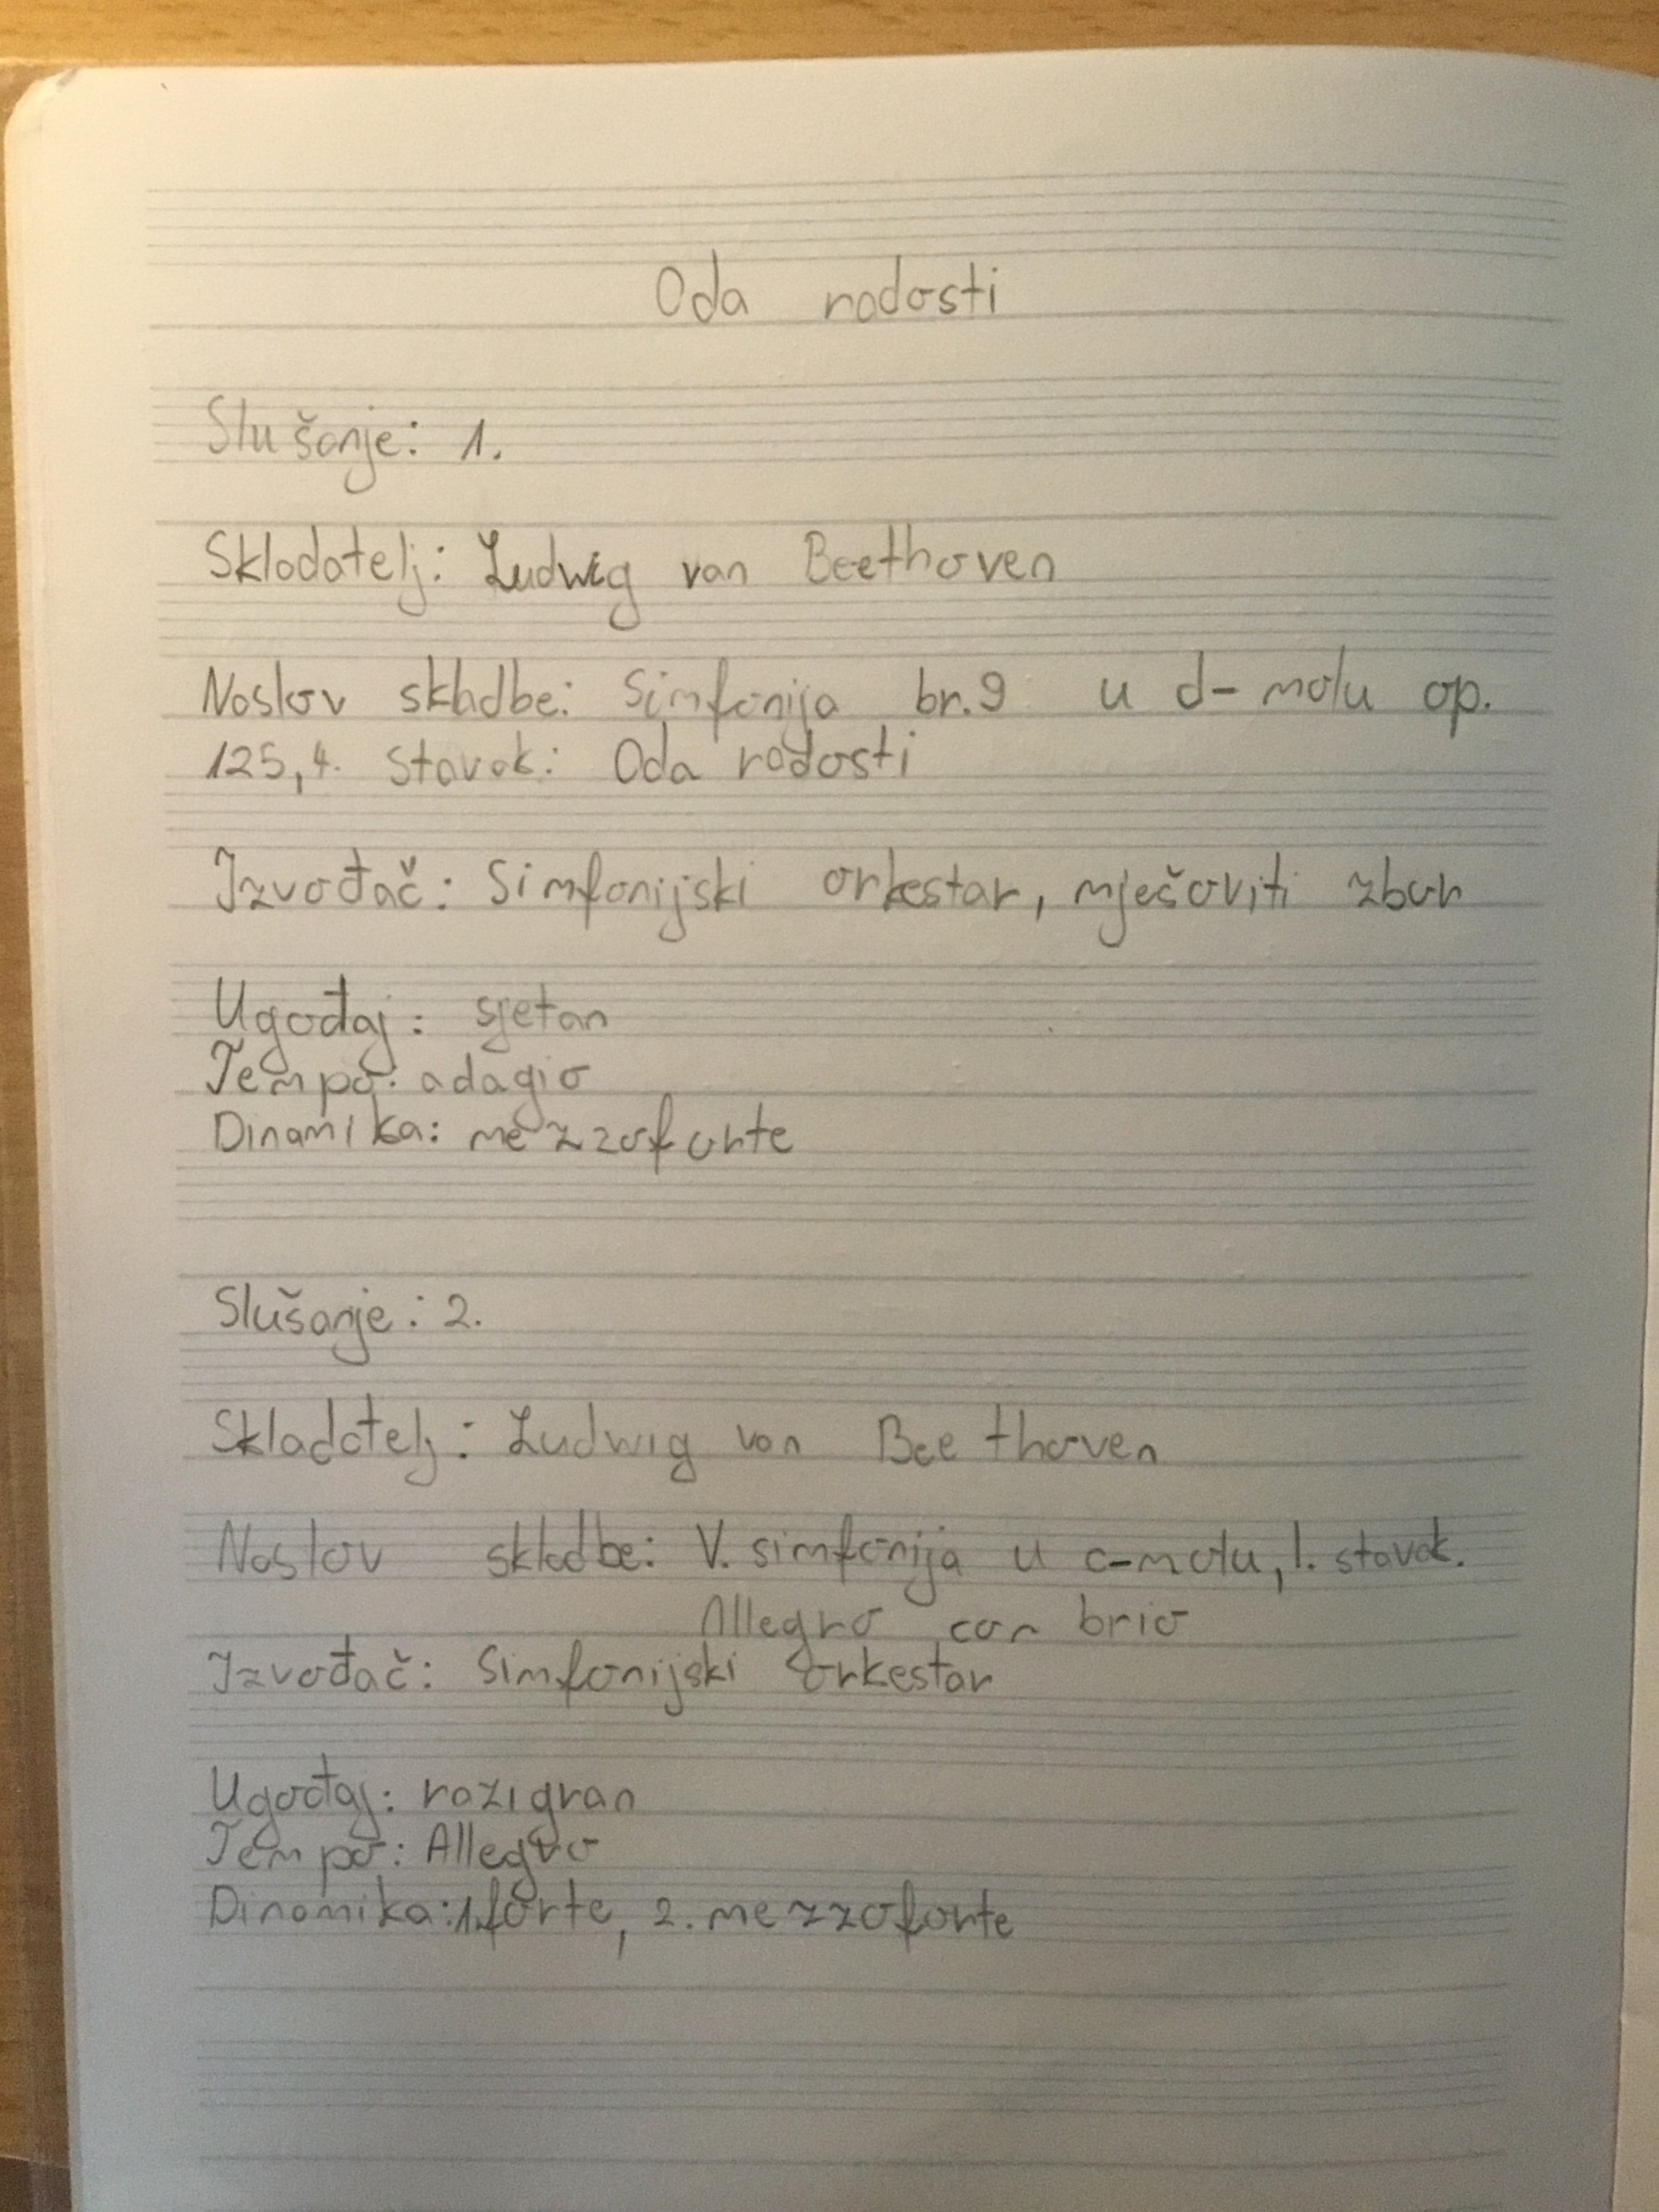 Oda radosti
Slušanje: 1.
Skladatelj: Ludwig van Beethoven
Naslov skladbe: Simfonija br. 9 u d-molu op.
125, 4. stavak: Oda radosti
Izvođač: Simfonijski orkestar, mješoviti zbor
Ugođaj: sjetan
Tempo: adagio
Dinamika: mezzoforte
Slušanje: 2.
Skladatelj: Ludwig van Beethoven
Naslov skladbe: V. simfonija u c-molu, 1. stavak.
Allegro con brio
Izvođač: Simfonijski orkestar
Ugođaj: razigran
Tempo: Allegro
Dinamika: 1. forte, 2. mezzoforte